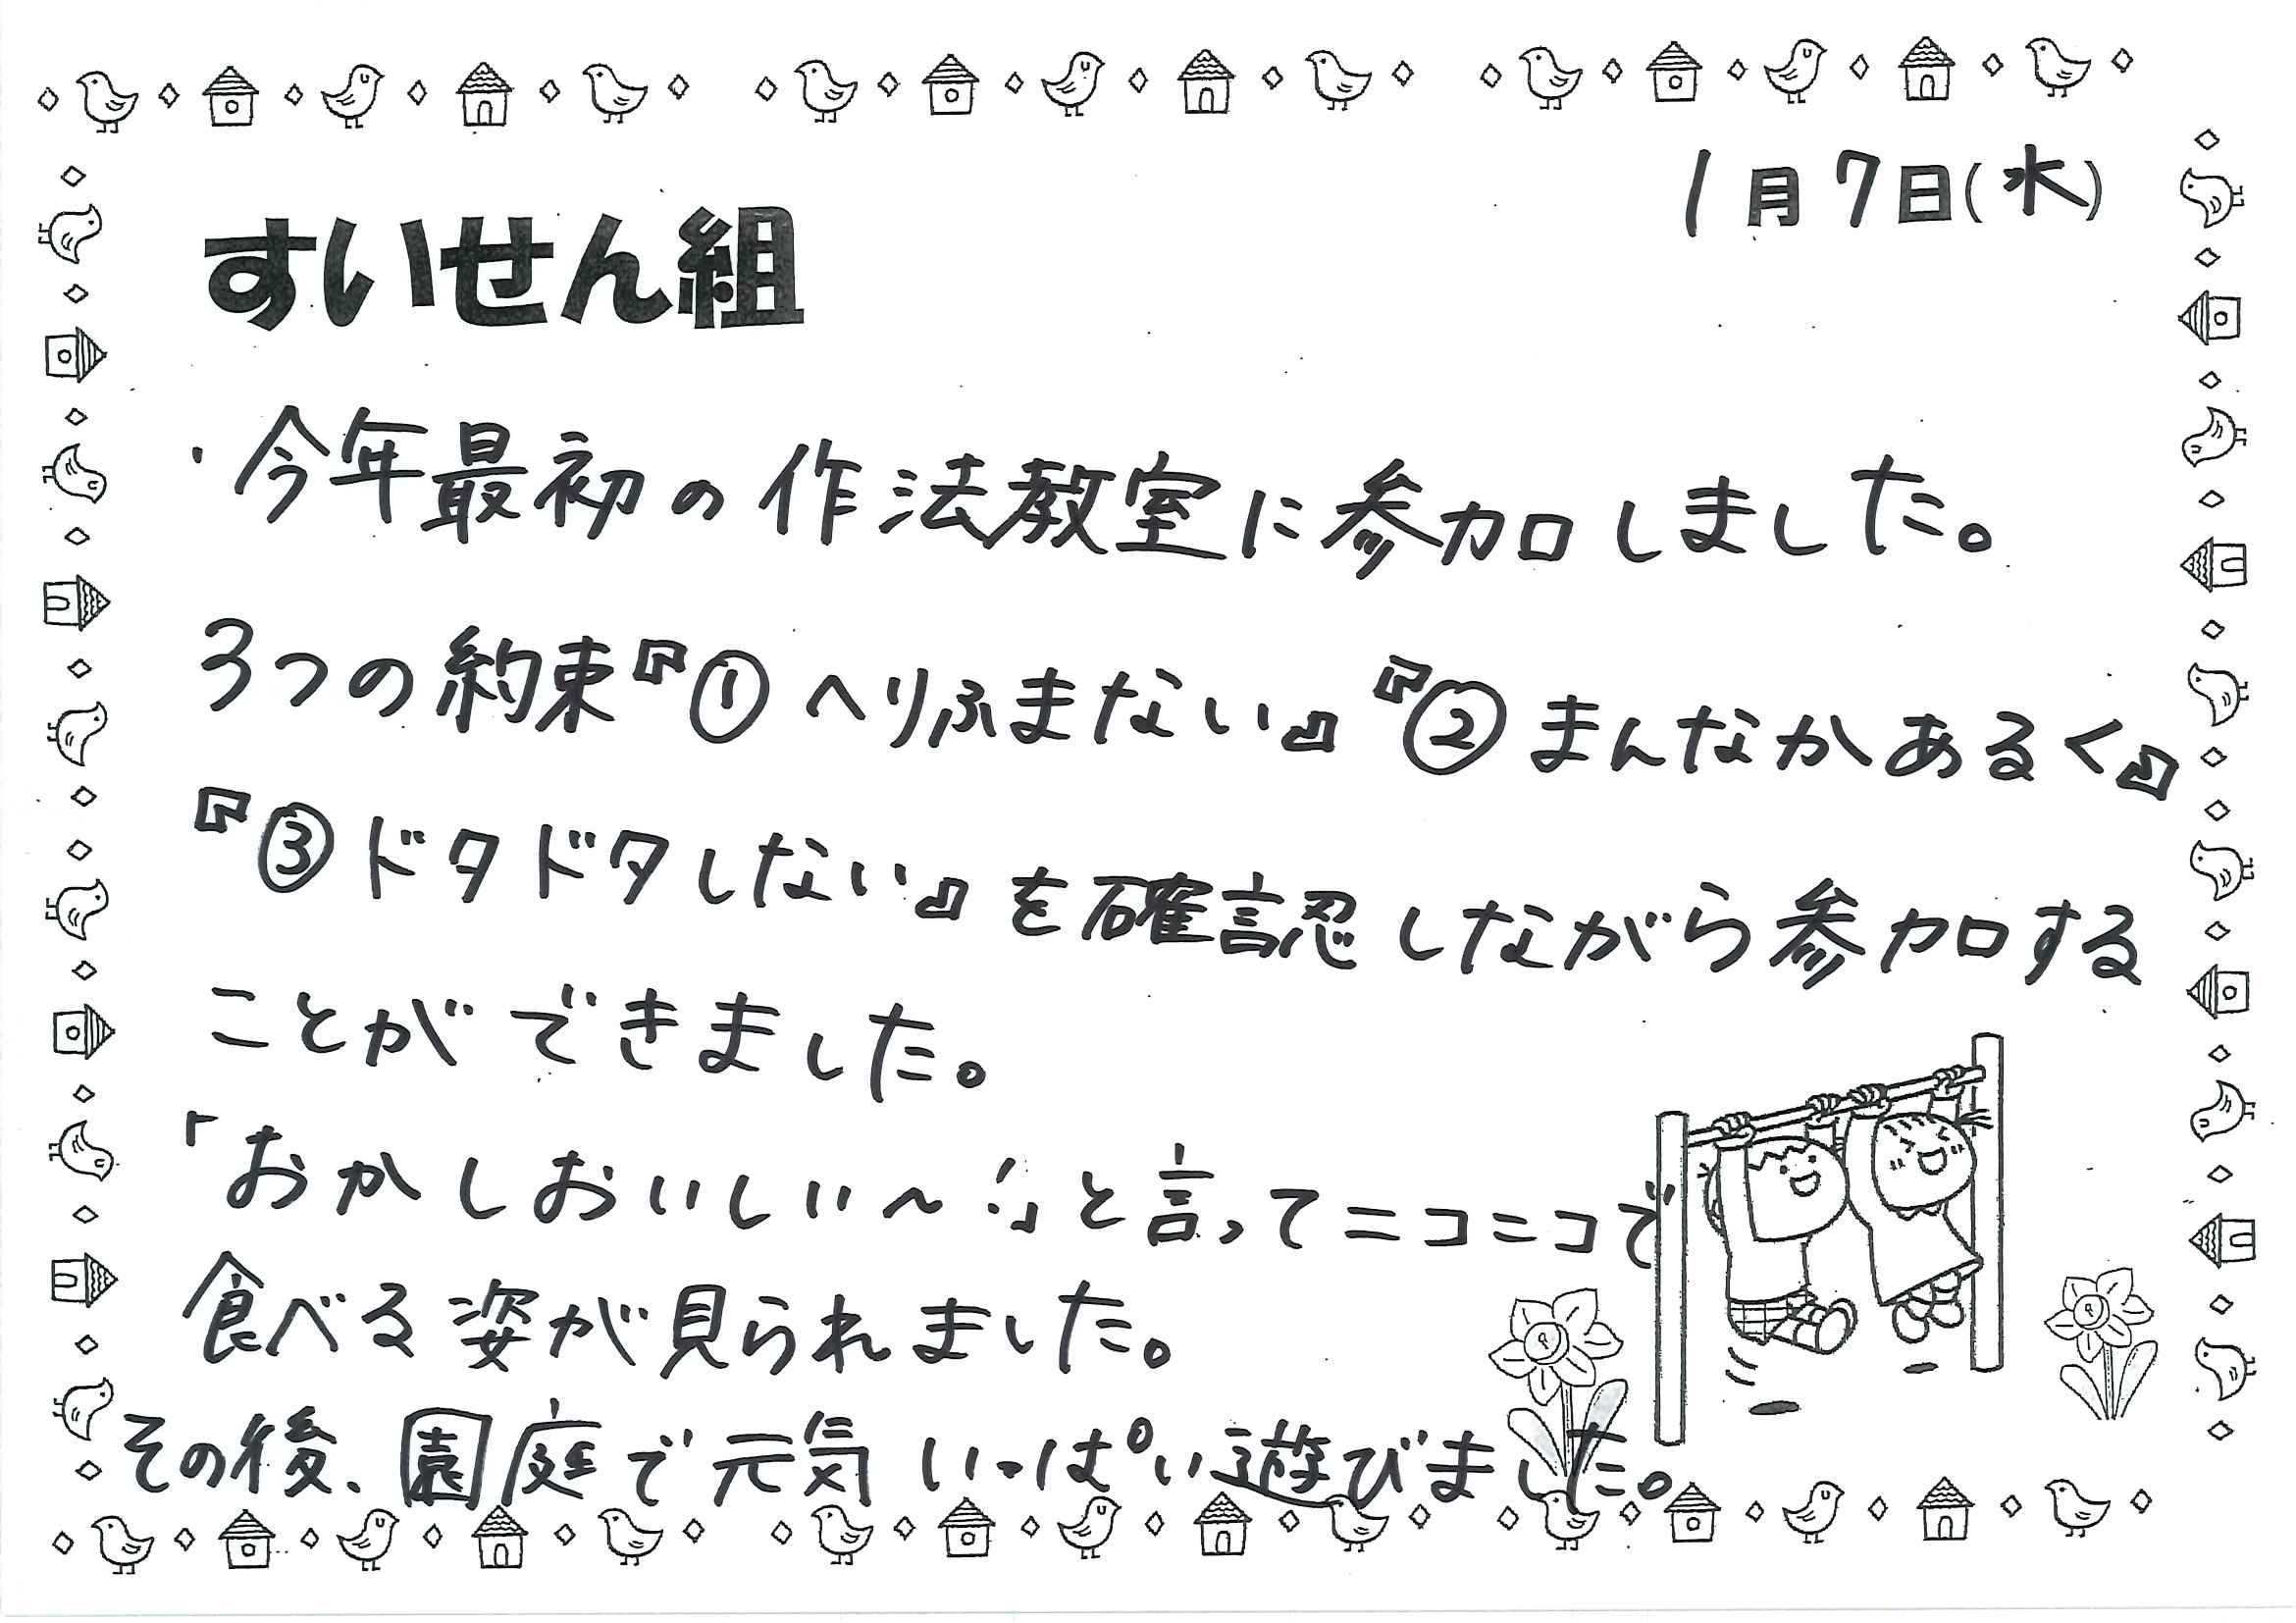 1月7日(水)
すいせん組
・今年最初の作法教室に参加しました。
3つの約束『①へりふまない』『②まんなかあるく』
『③ドタドタしない』を確認しながら参加する
ことができました。
「おかしおいしい～!」と言ってニコニコで
食べる姿が見られました。
その後、園庭で元気いっぱい遊びました。